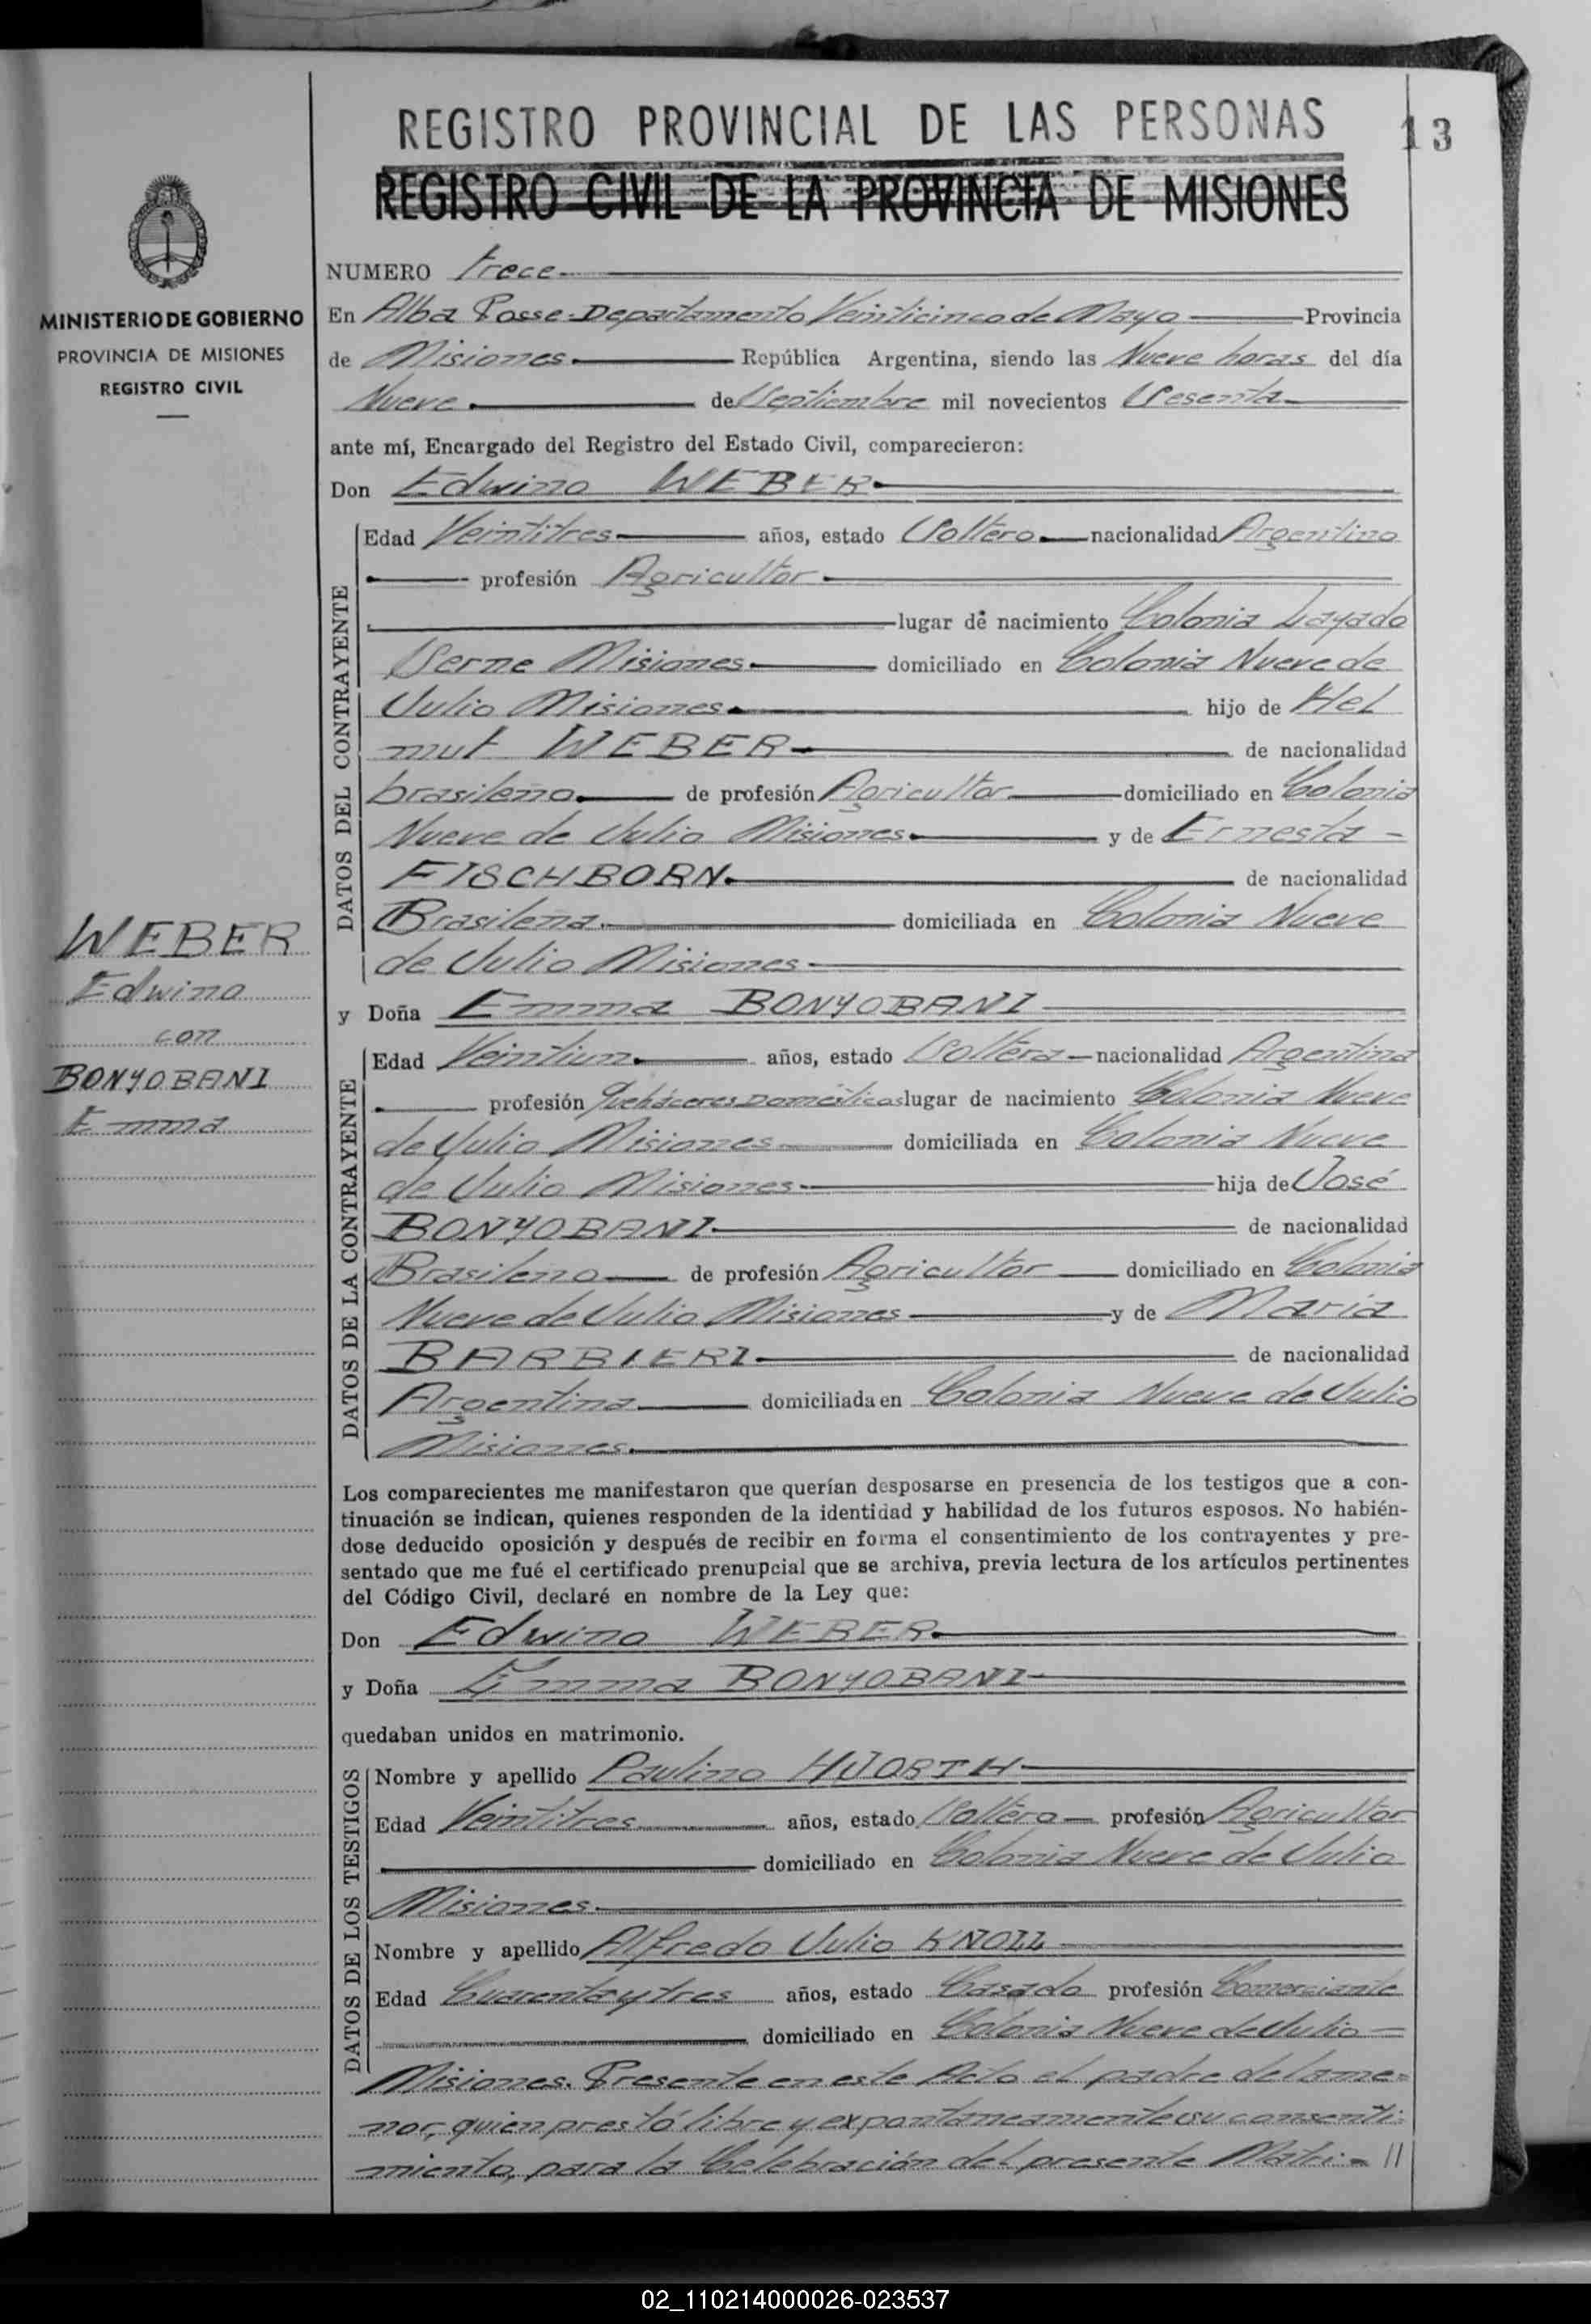 REGISTRO PROVINCIAL DE LAS PERSONAS
13
REGISTRO CIVIL DE LA PROVINCIA DE MISIONES
MINISTERIO DE GOBIERNO
PROVINCIA DE MISIONES
REGISTRO CIVIL
NUMERO Trece
En Alba Posse Departamento Veinticinco de Mayo Provincia
de Misiones República Argentina, siendo las Nueve horas del día
Nueve de Septiembre mil novecientos Sesenta
ante mí, Encargado del Registro del Estado Civil, comparecieron:
Don Edwino WEBER
DATOS DEL CONTRAYENTE
Edad Veintitres años, estado Soltero nacionalidad Argentino
profesión Agricultor
lugar de nacimiento Colonia Layado
Serne Misiones domiciliado en Colonia Nueve de
Julio Misiones hijo de Hel
mut WEBER de nacionalidad
brasileno de profesión Agricultor domiciliado en Colonia
Nueve de Julio Misiones y de Ernesta -
FISCHBORN de nacionalidad
Brasilena domiciliada en Colonia Nueve
de Julio Misiones
y Doña Emma BONYOBANI
DATOS DE LA CONTRAYENTE
Edad Veintiun años, estado Soltera nacionalidad Argentina
profesión Quehaceres Domésticos lugar de nacimiento Colonia Nueve
de Julio Misiones domiciliada en Colonia Nueve
de Julio Misiones hija de José
BONYOBANI de nacionalidad
Brasileno de profesión Agricultor domiciliado en Colonia
Nueve de Julio Misiones y de María
BARBIERI de nacionalidad
Argentina domiciliada en Colonia Nueve de Julio
Misiones.
WEBER
Edwino
con
BONYOBANI
Emma
Los comparecientes me manifestaron que querían desposarse en presencia de los testigos que a con-
tinuación se indican, quienes responden de la identidad y habilidad de los futuros esposos. No habién-
dose deducido oposición y después de recibir en forma el consentimiento de los contrayentes y pre-
sentado que me fué el certificado prenupcial que se archiva, previa lectura de los artículos pertinentes
del Código Civil, declaré en nombre de la Ley que:
Don Edwino WEBER
y Doña Emma BONYOBANI
quedaban unidos en matrimonio.
DATOS DE LOS TESTIGOS
Nombre y apellido Paulino HJORTH
Edad Veintitres años, estado Soltero profesión Agricultor
domiciliado en Colonia Nueve de Julio
Misiones.
Nombre y apellido Alfredo Julio KNOLL
Edad Cuarenta y tres años, estado Casado profesión Comerciante
domiciliado en Colonia Nueve de Julio
Misiones. Presente en este Acto el padre de la me-
nor, quien prestó libre y expontaneamente su consenti-
miento, para la Celebración del presente Matri- //
02_110214000026-023537